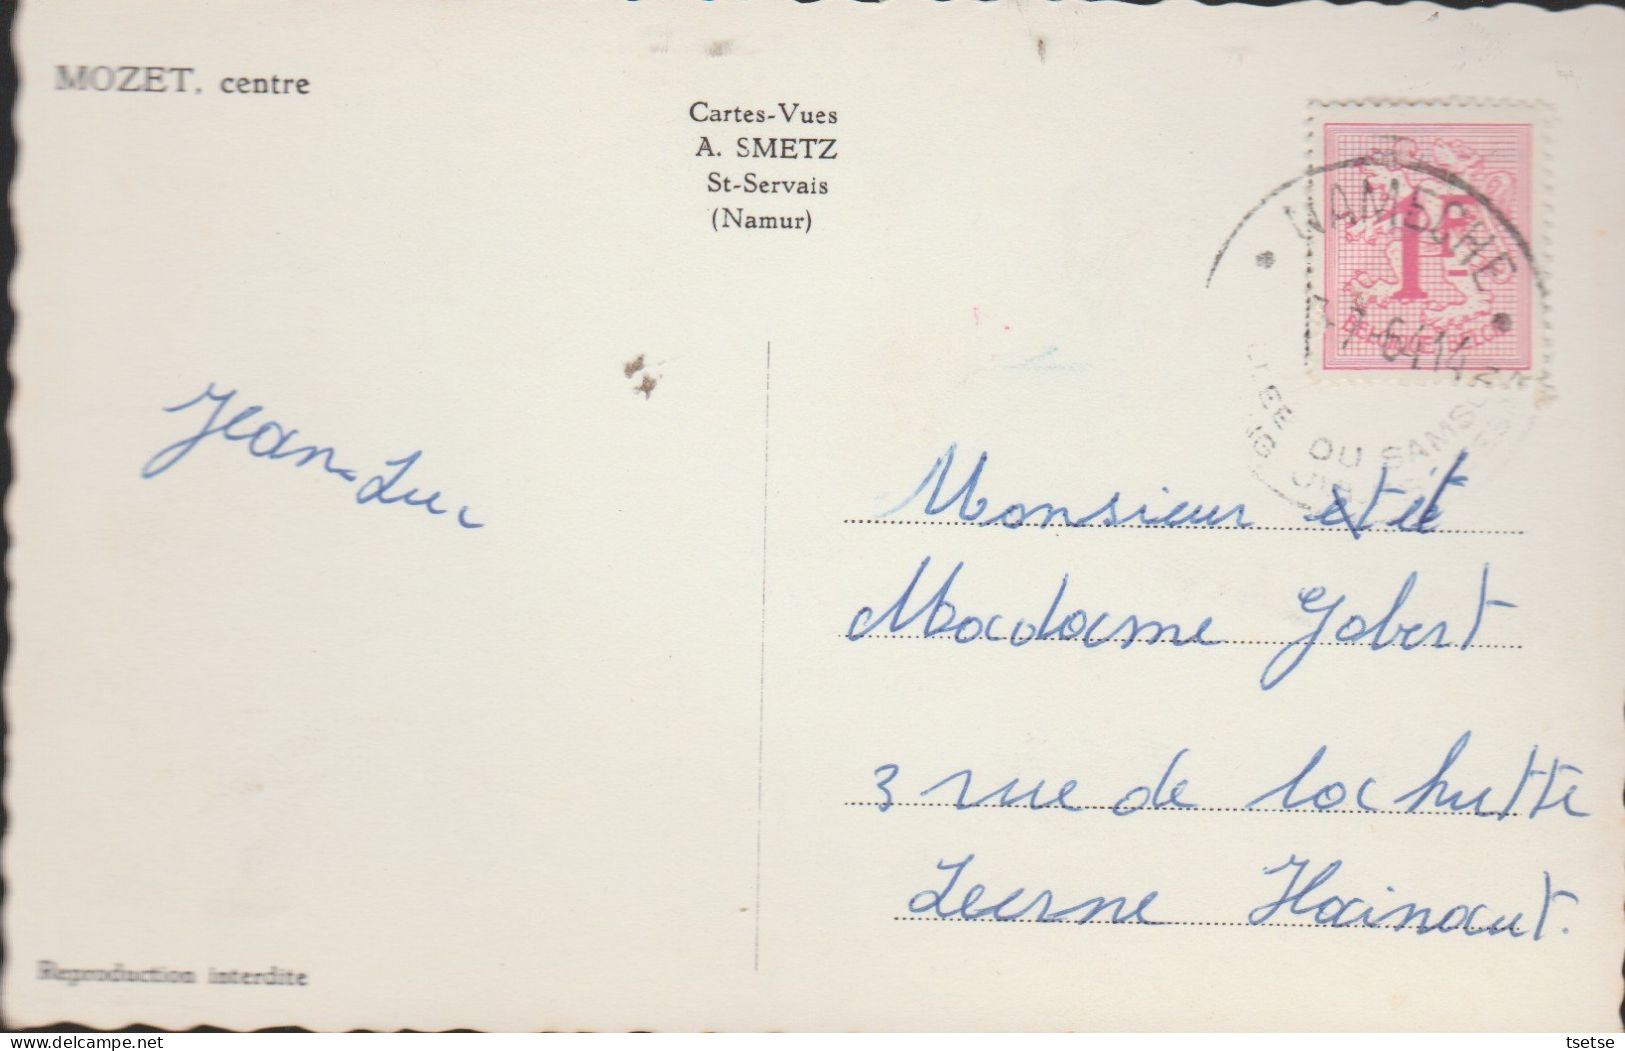 MOZET, centre
Cartes-Vues
A. SMETZ
St-Servais
(Namur)
NAMECHE
7-64 14
DU SAMSON
1F
BELGIQUE BELGIE
Jean-Luc
Monsieur et
Madame Gobert
3 rue de la chutte
Leerne Hainaut.
Reproduction interdite
tsetse